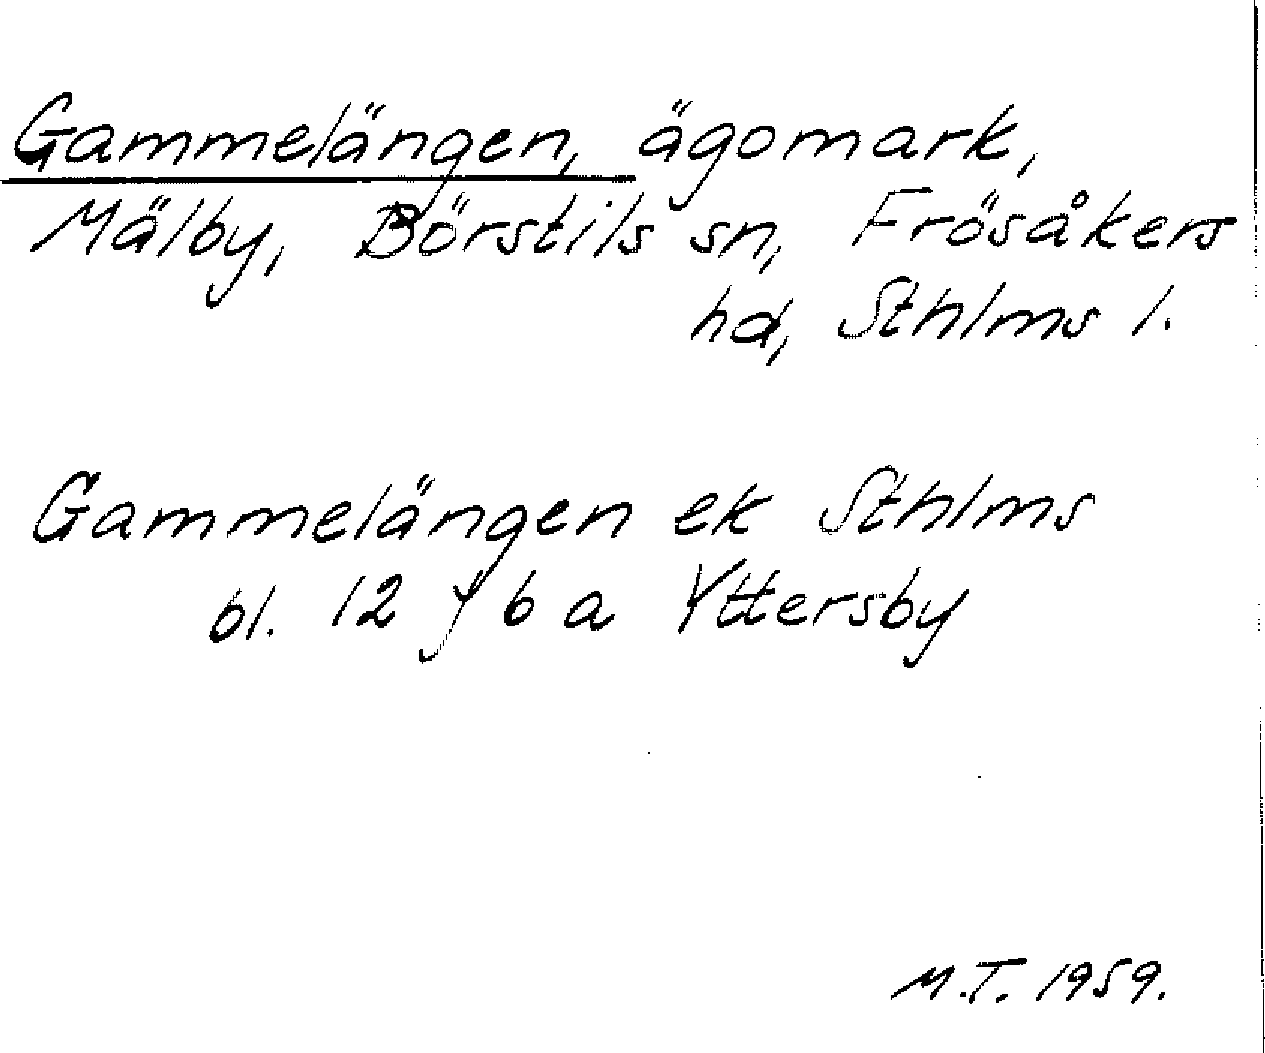 Gammelängen, ägomark,
Mälby, Börstils sn, Frösåkers
hd, Sthlms l.
Gammelängen ek Sthlms
bl. 12 f b a Yttersby
M.T. 1959.